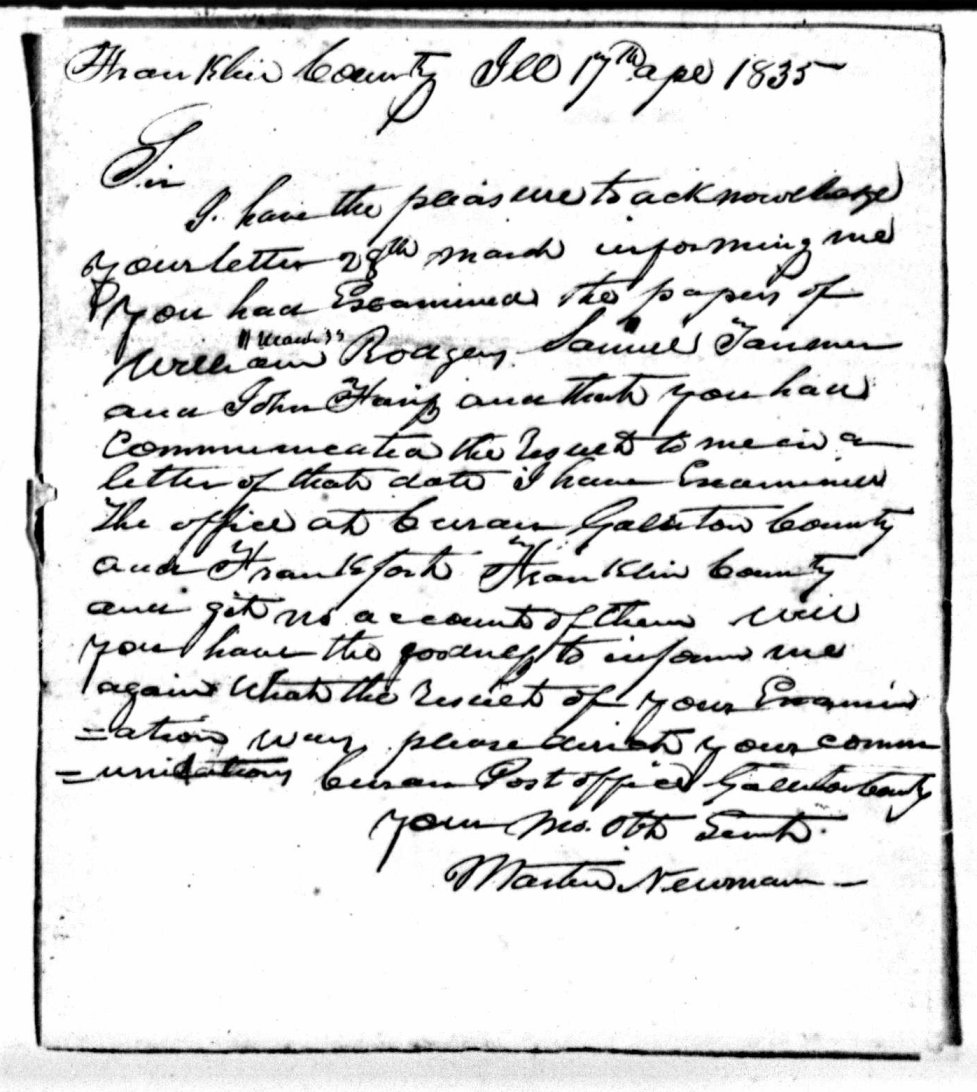 Franklin County Ill 17th apl 1835
Sir
I have the pleasure to acknowledge
your letter 28th march informing me
you had Examined the papers of
William Rodgers Samuel Tanner
and John Hays and that you had
Communicated the result to me in a
letter of that date I have Examined
The office at Curan Gallaton County
and Frankfort Franklin County
and git no account of them will
you have the goodness to inform me
again What the result of your Examin
=ation was please direct your comm
=unications Curan Post office Gallaton County
your Mo. Obt Servt.
Martin Newman –